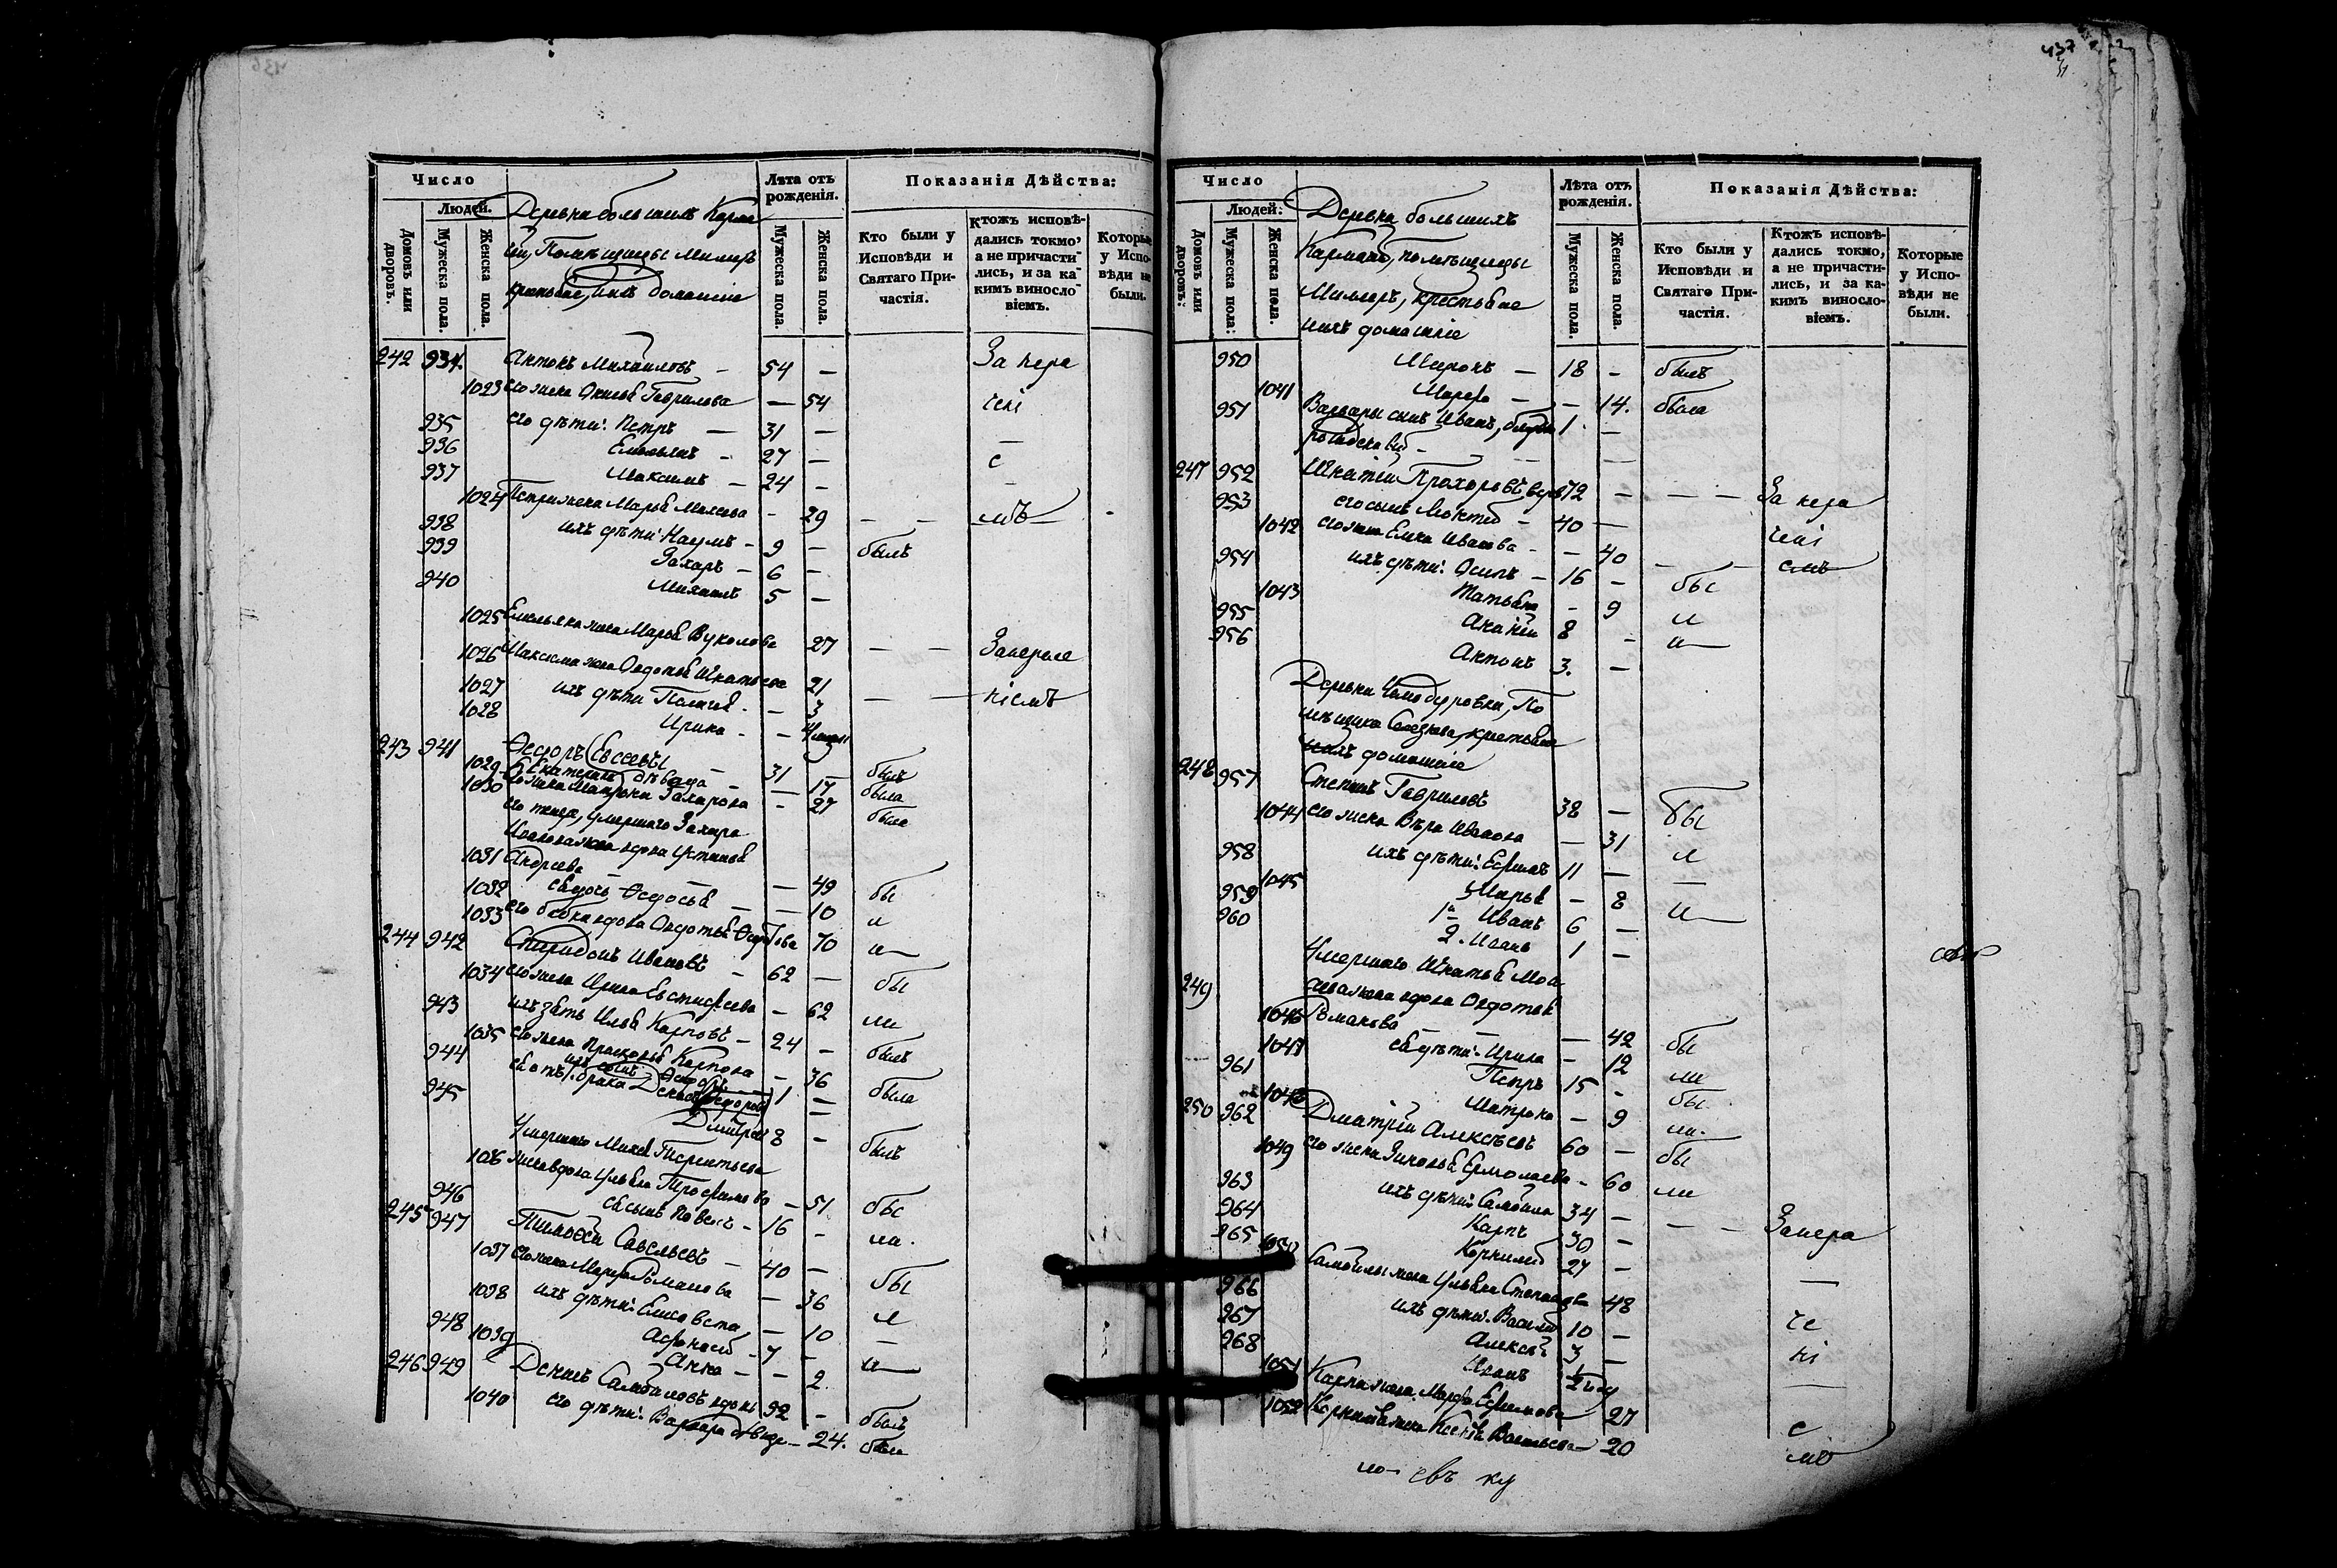 437
Число
Людей.
Домовъ или дворовъ.
Мужеска пола.
Женска пола.
Деревни большихъ Карма
ей, Помѣщицы Миллеръ
крестьяне, ихъ домашніе
Лѣта отъ рожденія.
Мужеска пола.
Женска пола.
Показанія Дѣйства:
Кто были у Исповѣди и Святаго Причастія.
Ктожъ исповѣдались токмо, а не причастились, и за какимъ винословіемъ.
Которые у Исповѣди не были.
242 934. Антонъ Михайловъ — 54 — За нера
1023 его жена Ксенья Гаврилова — 54 чені
935 его дѣти: Петръ — 31 —
936 Емельянъ — 27 — е
937 Максимъ — 24 —
1024 Петра жена Марья Моисеева — 29 — — мъ
938 ихъ дѣти: Наумъ — 9 — былъ
939 Захаръ — 6 —
940 Михаилъ 5 —
1025 Емельяна жена Марья Вуколова 27 — — Занераче
1026 Максима жена Овдотья Игнатьева 21 — — ніемъ
1027 ихъ дѣти Полагея — — 3
1028 Ирина — — 4 мцы
243 941 Ѳедоръ Евсеевъ — 31 — былъ
1029 Екатерина дѣвка — — 17 была
1030 его жена Матрона Захарова — 27 была
его теща, умершаго Захара
жена вдова Устинья
1031 Андреева — — 49 бы
1032 ея дочь Ѳедосья — — 10 л
1033 его бабка вдова Овдотья Ѳедотова 70 и—
244 942 Спиридонъ Ивановъ — 62 — бы
1034 его жена Ирина Евстифеева — 62 ли
943 ихъ зять Илья Карповъ — 24 — былъ
1035 его жена Прасковья Карпова — 36 была
944 ихъ сынъ Ѳедоръ 1 —
ея отъ 1. брака
945 Дмитрей 8 — былъ
умершаго Михея Терентьева
1036 жена вдова Ульяна Трофимова — 51 бы
946 ея сынъ Павелъ — 16 — ли.
245 947 Тимоѳей Савельевъ — 40 — бы
1037 его жена Марфа Романова — 36 л
1038 ихъ дѣти: Елисавета — 10 —
948 Афонасей — 7 — и—
1039 Анна — — 2.
246 949 Денисъ Самойловъ вдовъ 92 — былъ
1040 его дѣти: Варвара дѣвка — 24. была
Число
Людей:
Домовъ или дворовъ:
Мужеска пола:
Женска пола.
Деревни большихъ
Кармалей, помѣщицы
Миллеръ, крестьяне
ихъ домашніе
Лѣта отъ рожденія.
Мужеска пола
Женска пола.
Показанія Дѣйства:
Кто были у Исповѣди и Святаго Причастія.
Ктожъ исповѣдались токмо, а не причастились, и за какимъ винословіемъ.
Которые у Исповѣди не были.
950 Миронъ — 18 — былъ
1041 Марфа — — 14. была
951 Варвары сынъ Иванъ, 1 —
247 952 Игнатій Прохоровъ вдовъ 72 — — — За нера
953 его сынъ Моктей — 40 —
1042 его жена Елена Иванова — — 40 чені
954 ихъ дѣти: Осипъ — 16 — бы — емъ
1043 Татьяна — 9 л
955 Ананій 8 — и—
956 Антонъ 3. —
Деревни Чемодуровки, По
мѣщика крестьяне
ихъ домашніе
248 957 Степанъ Гавриловъ 38 — бы
1044 его жена Вѣра Иванова — 31 л
958 ихъ дѣти: Ефимъ 11 — —
1045 Марья — 8 и—
959 1й Иванъ 6 —
960 2. Иванъ 1 —
249 умершаго Игнатья
жена вдова Овдотья
1046 Романова — — 42 бы
1047 ея дѣти: Ирина — 12 ли
961 Петръ 15 — бы.
1048 Матрона — 9 ли.
250 962 Дмитрій Алексѣевъ 60 — бы
1049 его жена Зиновья Ермолаева — 60 ли
963 ихъ дѣти: Самойла 34 — — — Занера
964 Карпъ 30 —
965 Корнилей 27 — —
1050 Самойлы жена Ульяна Степанова 48
966 ихъ дѣти: Василей 10 — че
967 Алексѣй 3 — ні
968 Иванъ ½ году —
1051 Карпа жена Марфа Ефимова 27 е
1052 Корнилья жена Ксенья Васильева — 20 мъ